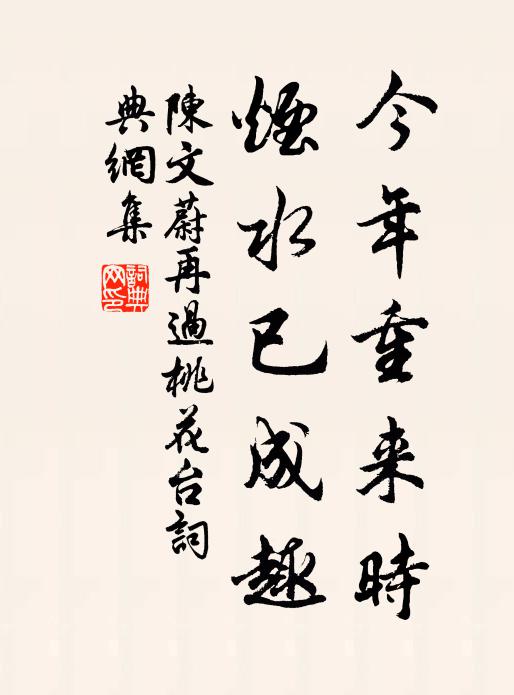 今年重来時
煙水已成趣
陳文蔚再過桃花台詞
典網集
詞典网印